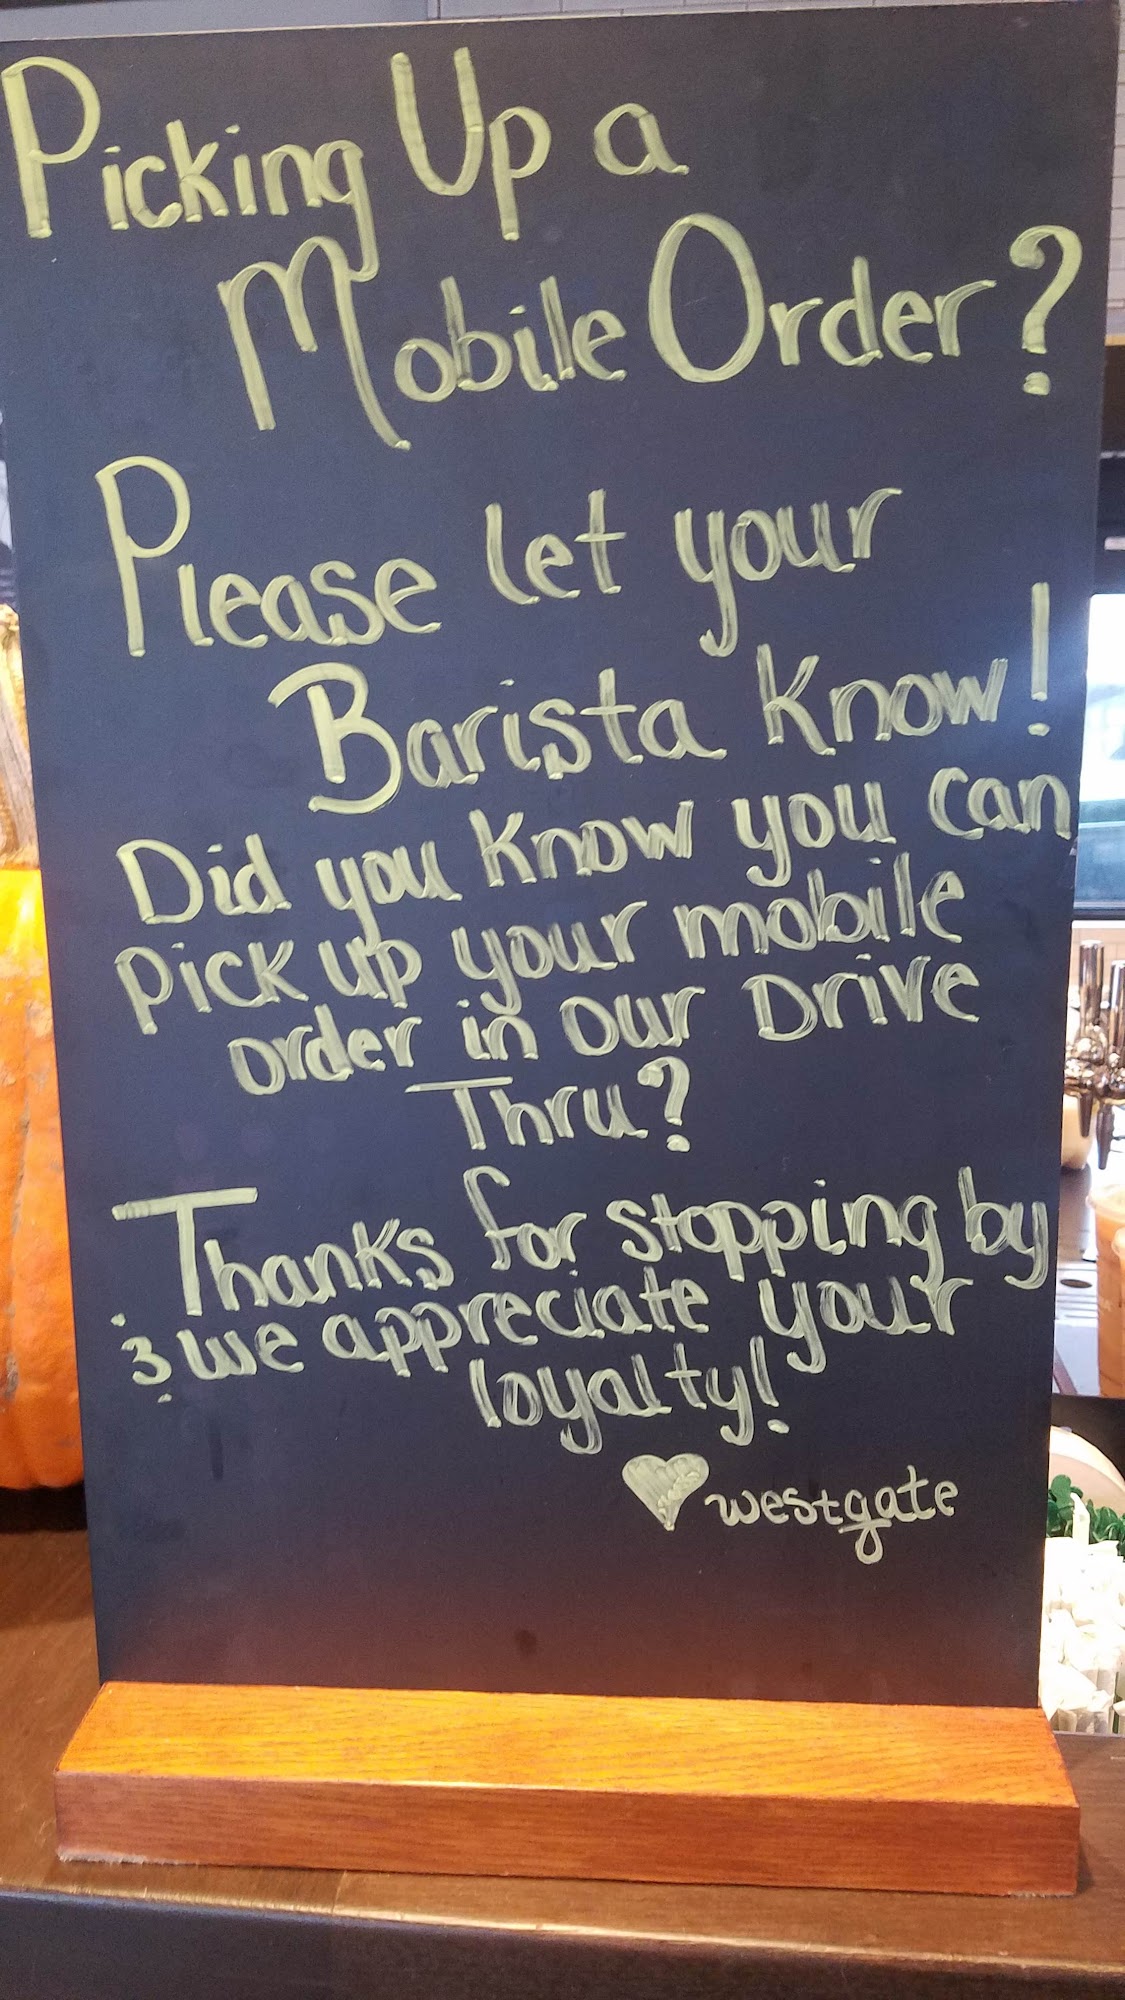 Picking Up a
Mobile Order?
Please let your
Barista Know!
Did you know you can
pick up your mobile
order in our Drive
Thru?
Thanks for stopping by
& we appreciate your
loyalty!
westgate